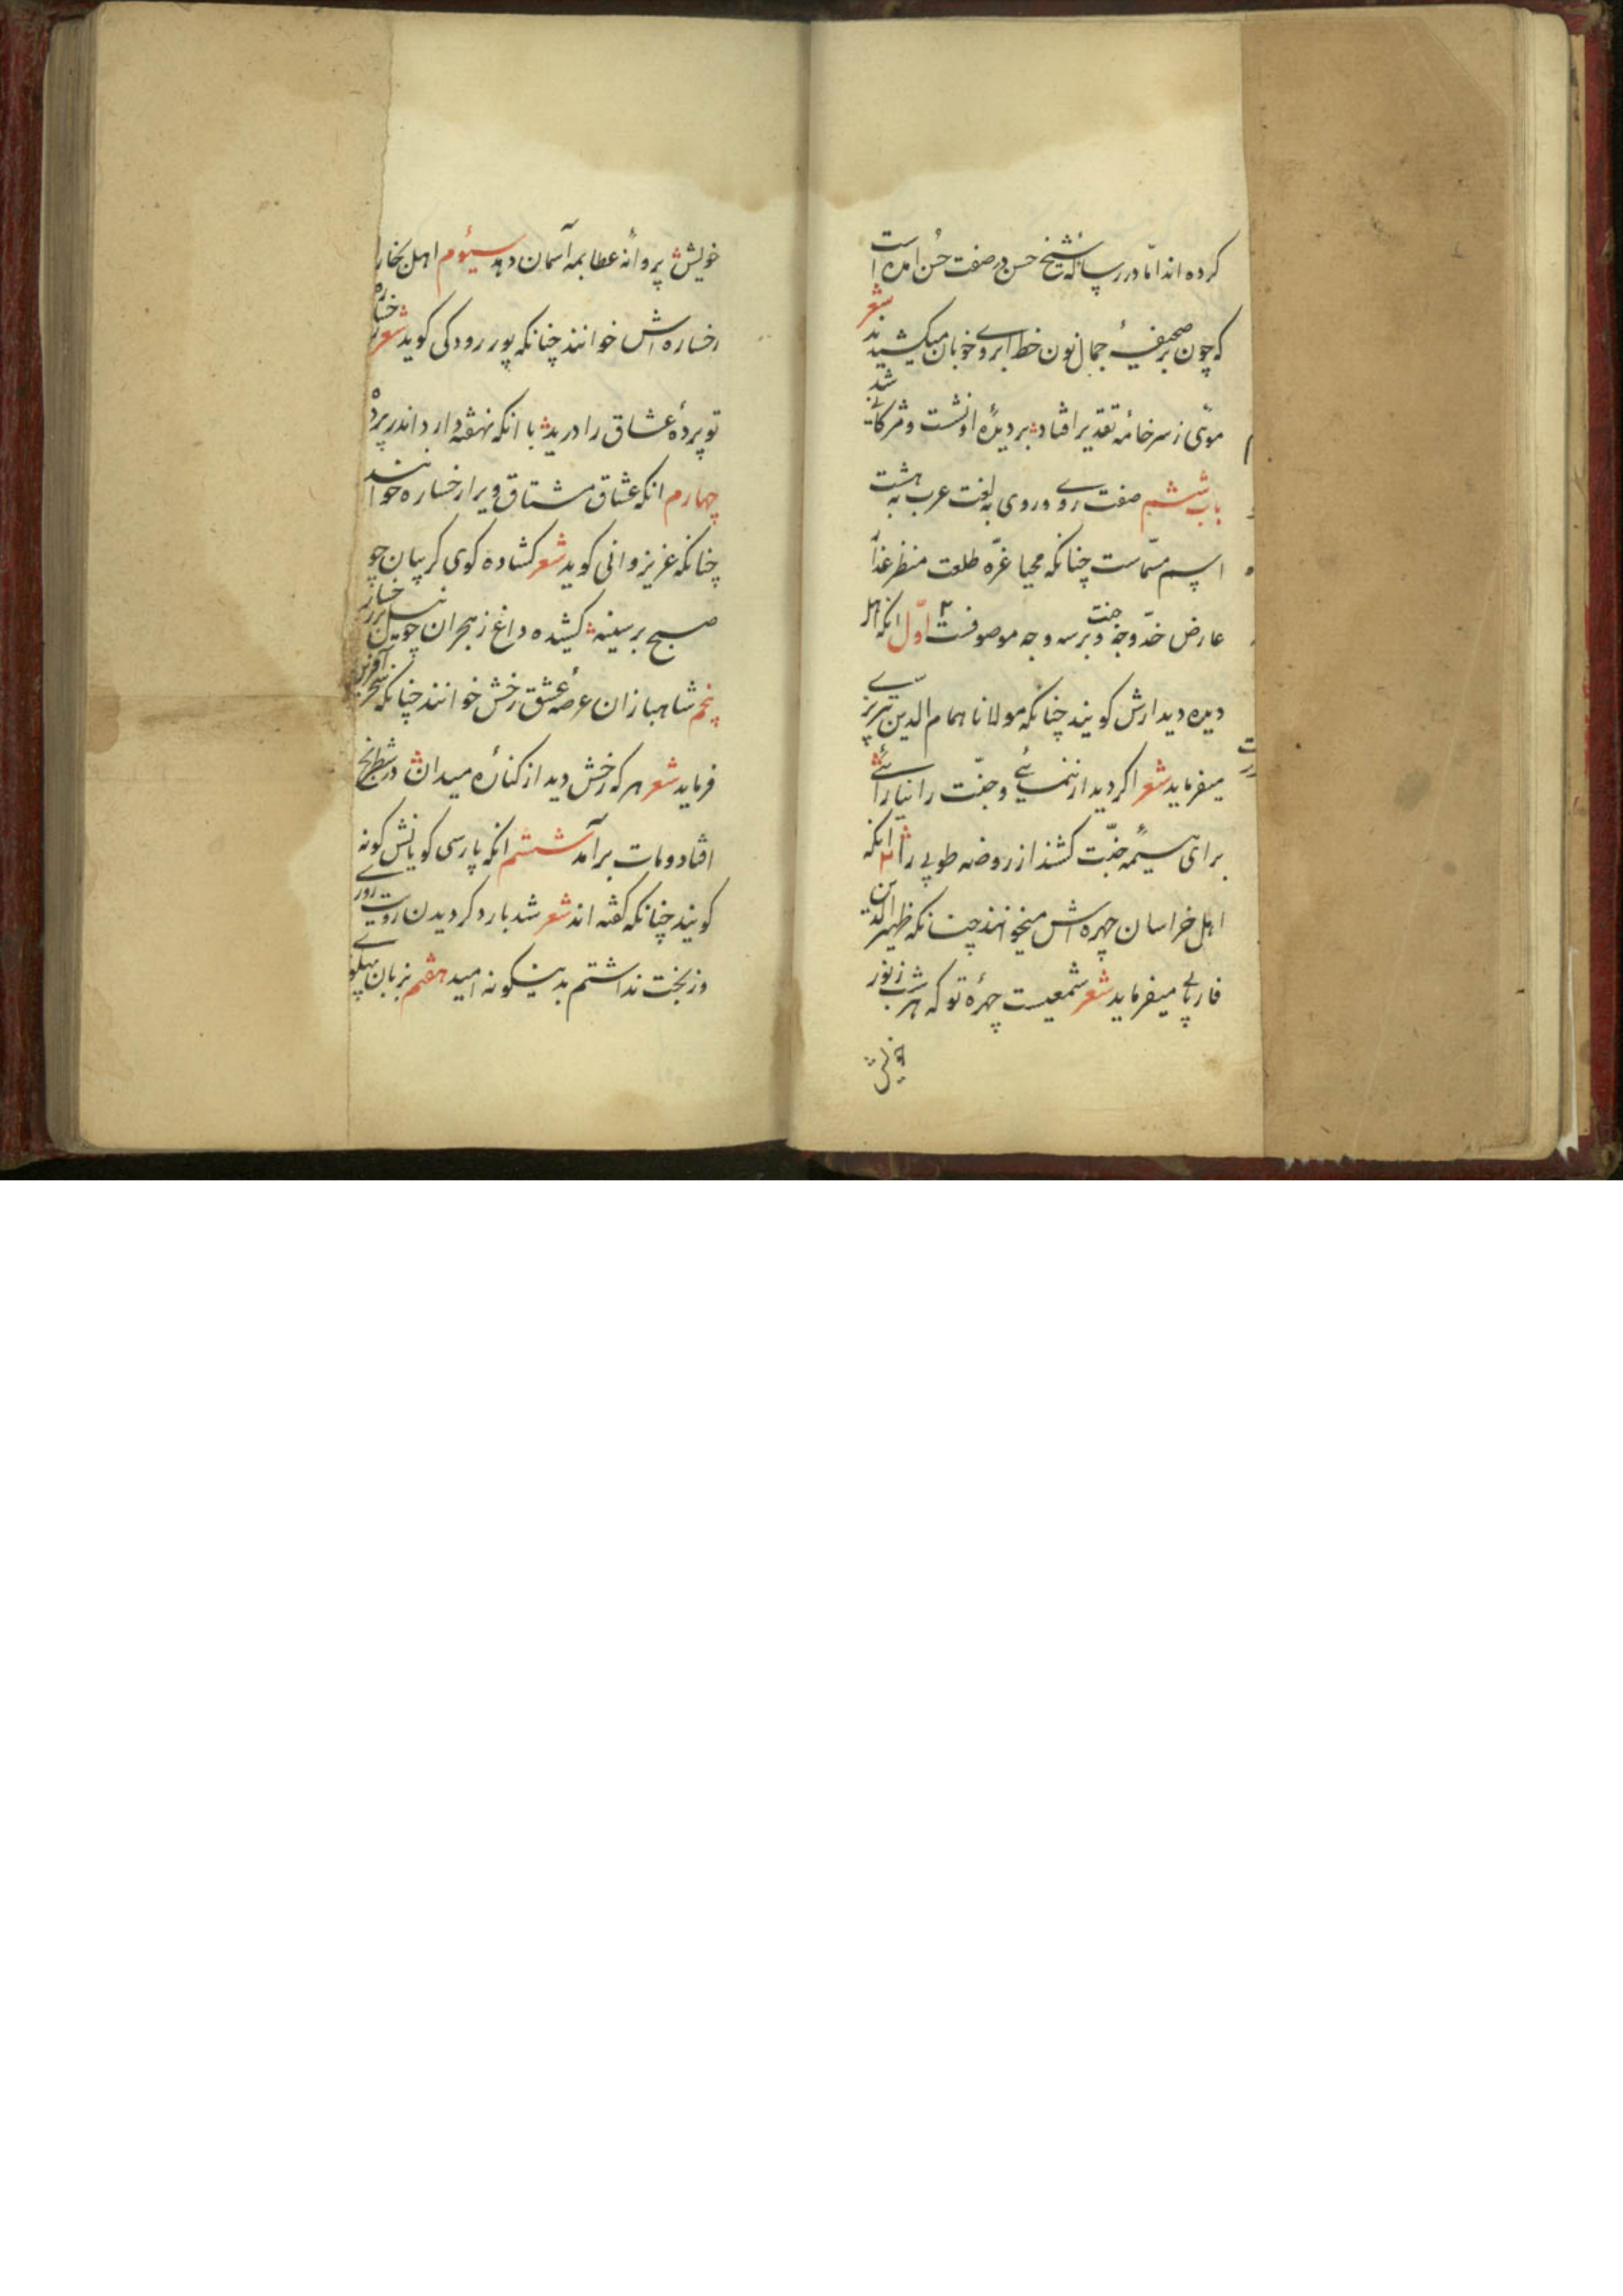 کرده اند امّا در رسالهٔ شیخ حسن در صفت حُسن امده است
شعر
که چون بر صحیفهٔ جمال نون خط ابروی خوبان میکشیدند
موئی ز سر خامهٔ تقدیر افتاد بر دیدهٔ او نشست و مژکانی شد
باب ششم صفت روی و روی به لغت عرب به هشت
اسم مسمّاست چنانکه محیا غرّه طلعت منظر عذار
عارض خدّ وجه وجنت و بر سه وجه موصوفست اوّل انکه اهل
دیده دیدارش کویند چنانکه مولانا همام الدین تبریزی
میفرماید شعر اکر دیدار ننمائی و جنّت را نیارائی
برای هیمهٔ جنّت کشند از روضه طوبی را ۲ انکه
اهل خراسان چهره اش میخوانند چنانکه ظهیر الدین
فاریابی میفرماید شعر شمعیست چهرهٔ تو که هر شب ز نور
خویش
خویش پروانهٔ عطا بمه آسمان دهد سیوم اهل بخارا
رخساره اش خوانند چنانکه پور رودکی کوید شعر رخساره
تو پردهٔ عشاق را درید با انکه نهفته دارد اندر پرده
چهارم انکه عشاق مشتاق ویرا رخساره خوانند
چنانکه عزیز وانی کوید شعر کشاده کوی کریبان چو
صبح بر سینه کشیده داغ ز هجران چو نیل بر رخسار
پنجم شاهبازان عرصهٔ عشق رخش خوانند چنانکه سحر آفرین
فرماید شعر هر که رخش دید از کنارهٔ میدان در شطرنج
افتاد و مات برآمد ششم انکه پارسی کویانش کونه
کویند چنانکه کفته اند شعر شد بارد کر دیدن رویت روزی
وز بخت نداشتم بدینکونه امید هفتم بزبان پهلوی